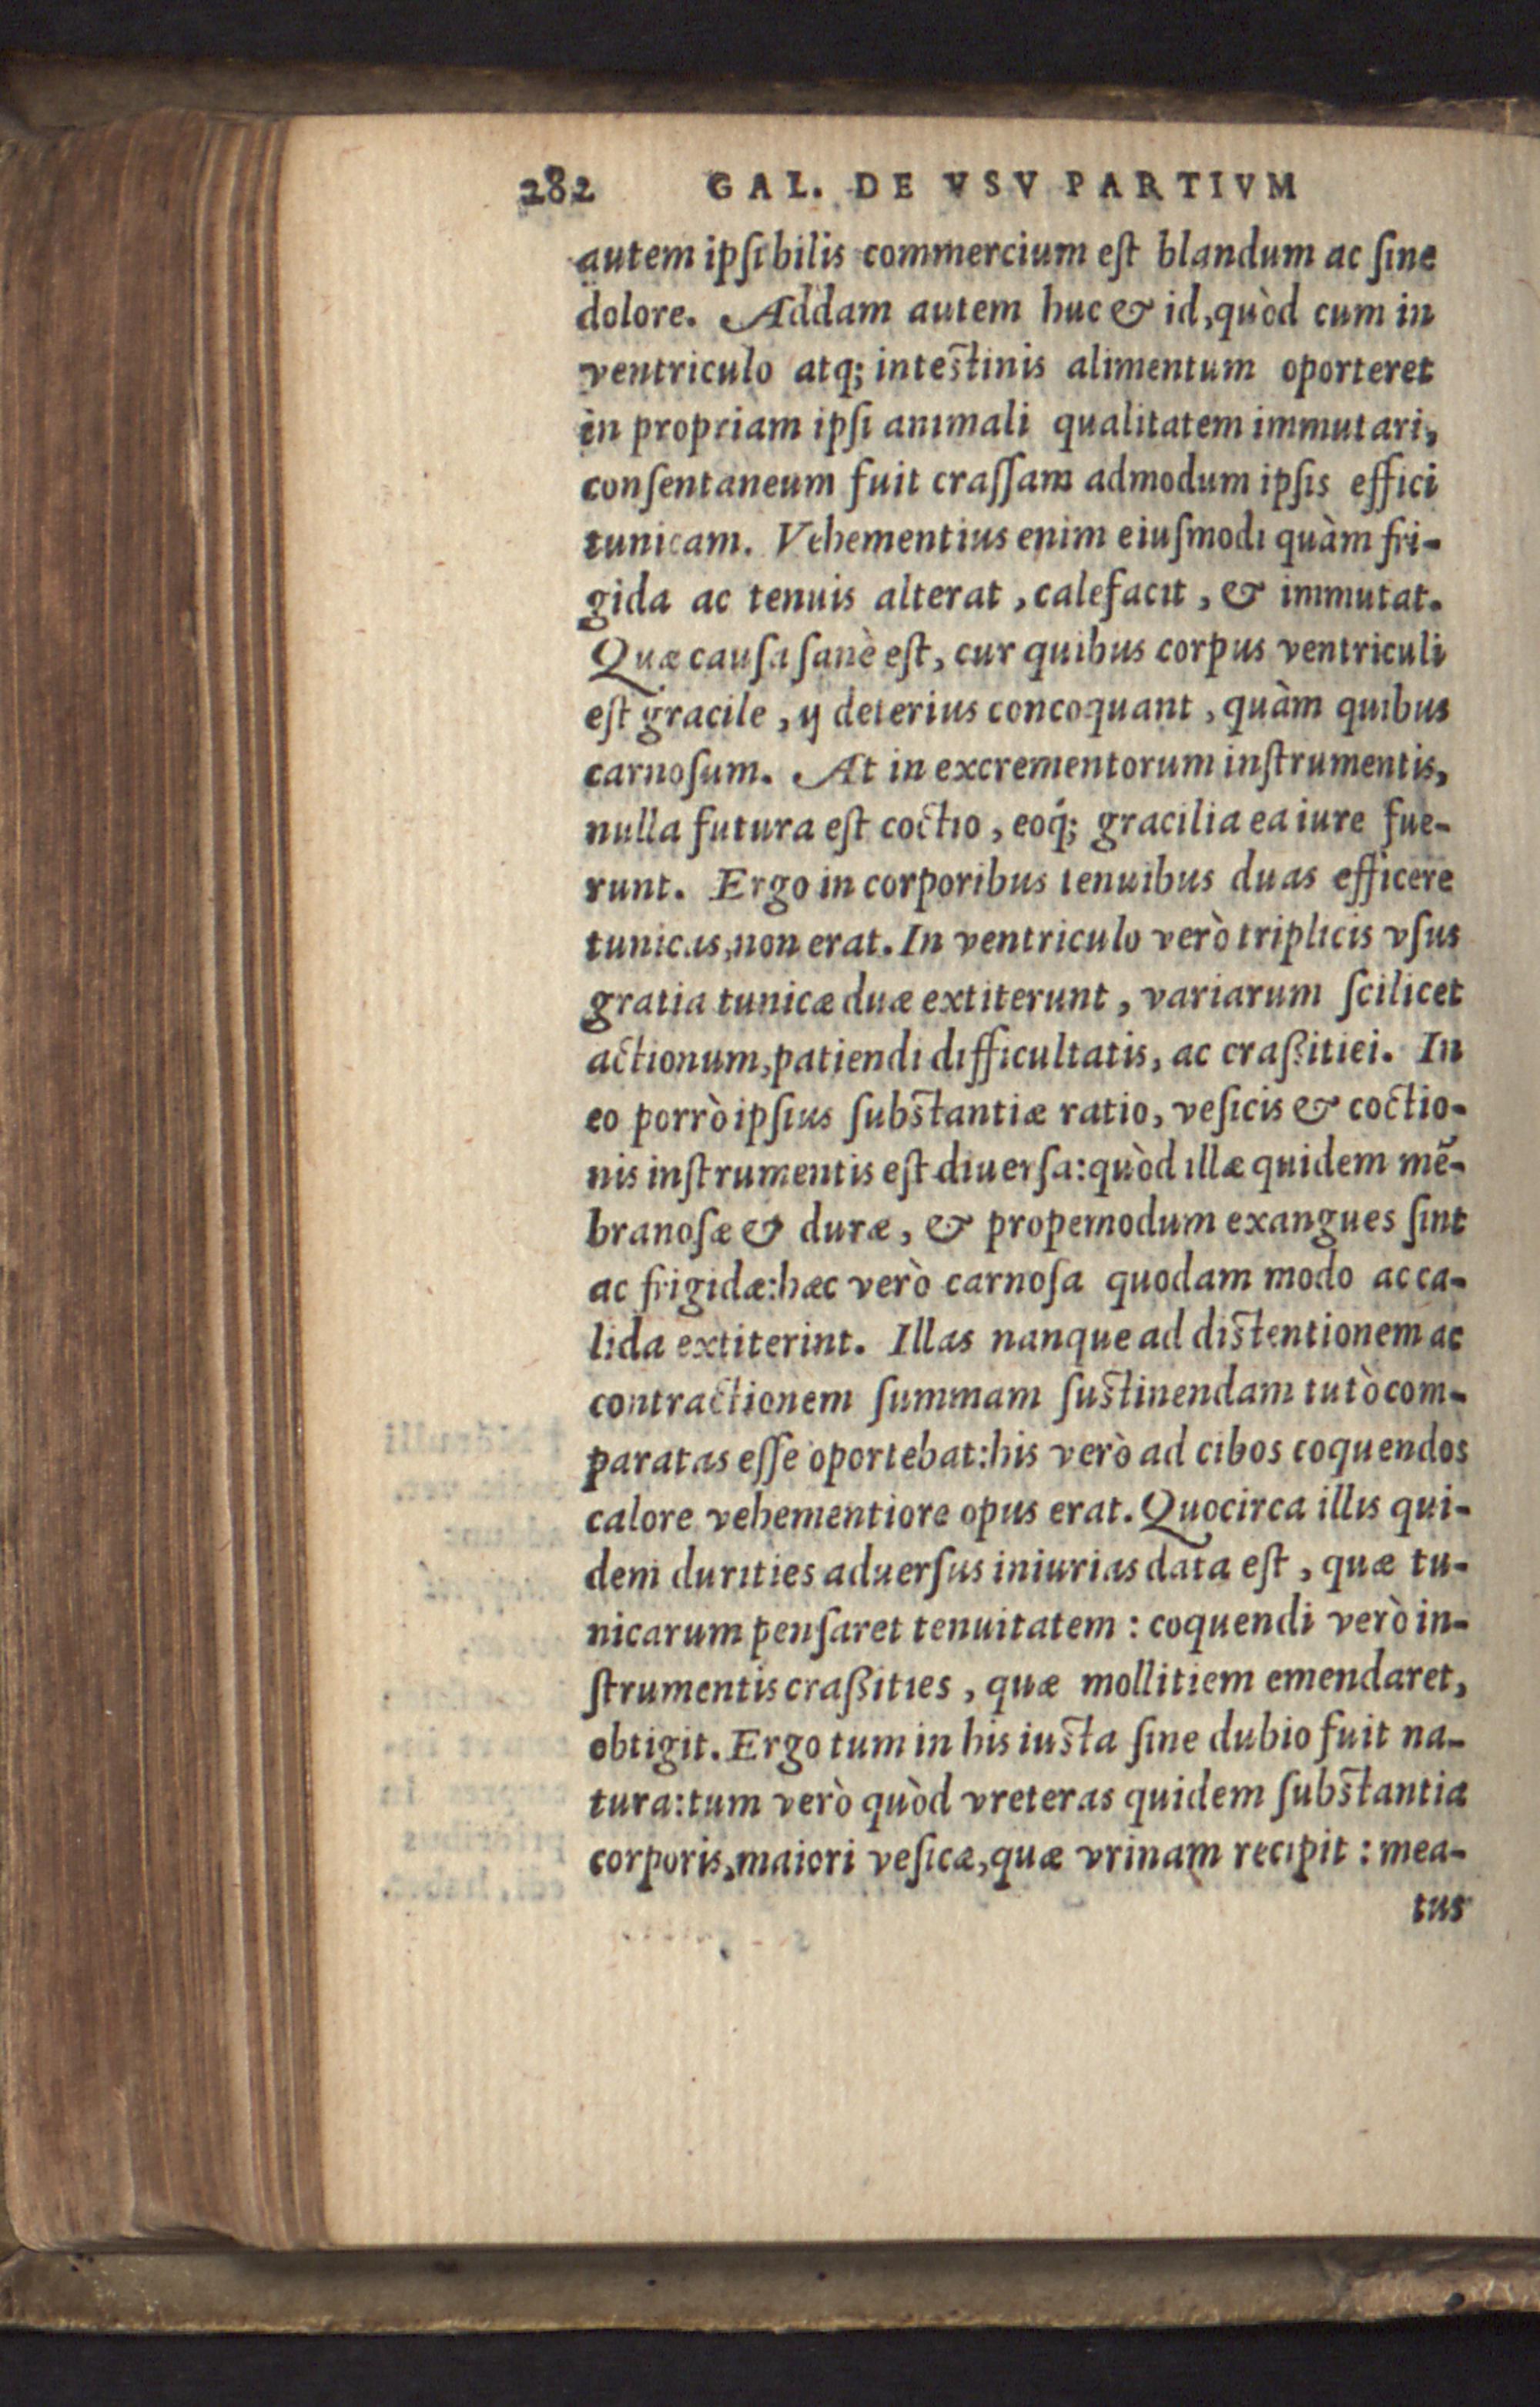 282 GAL. DE VSV PARTIVM
autem ipſi bilis commercium eſt blandum ac ſine
dolore. Addam autem huc & id, quòd cum in
ventriculo atq; inteſtinis alimentum oporteret
in propriam ipſi animali qualitatem immutari,
conſentaneum fuit craſſam admodum ipſis effici
tunicam. Vehementius enim eiuſmodi quàm fri-
gida ac tenuis alterat, calefacit, & immutat.
Quæ cauſa ſanè eſt, cur quibus corpus ventriculi
eſt gracile, ij deterius concoquant, quàm quibus
carnoſum. At in excrementorum inſtrumentis,
nulla futura eſt coctio, eoq́; gracilia ea iure fue-
runt. Ergo in corporibus tenuibus duas efficere
tunicas, non erat. In ventriculo verò triplicis vſus
gratia tunicæ duæ extiterunt, variarum ſcilicet
actionum, patiendi difficultatis, ac craßitiei. In
eo porrò ipſius ſubſtantiæ ratio, veſicis & coctio-
nis inſtrumentis eſt diuerſa: quòd illæ quidem mē-
branoſæ & duræ, & propemodum exangues ſint
ac frigidæ: hæc verò carnoſa quodam modo ac ca-
lida extiterint. Illas nanque ad diſtentionem ac
contractionem ſummam ſuſtinendam tutò com-
paratas eſſe oportebat: his verò ad cibos coquendos
calore vehementiore opus erat. Quocirca illis qui-
dem durities aduerſus iniurias data eſt, quæ tu-
nicarum penſaret tenuitatem: coquendi verò in-
ſtrumentis craßities, quæ mollitiem emendaret,
obtigit. Ergo tum in his iuſta ſine dubio fuit na-
tura: tum verò quòd vreteras quidem ſubſtantia
corporis, maiori veſicæ, quæ vrinam recipit: mea-
tus